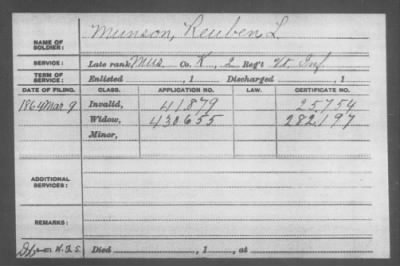 NAME OF SOLDIER: Munson, Reuben L.
SERVICE: Late rank Mus. Co. K, 2 Reg't Vt. Inf.
TERM OF SERVICE: Enlisted , 1 Discharged , 1
DATE OF FILING. CLASS. APPLICATION NO. LAW. CERTIFICATE NO.
1864 Mar. 9 Invalid, 41.879 25.754
Widow, 430655 282.197
Minor,
ADDITIONAL SERVICES:
REMARKS:
Died , 1 , at